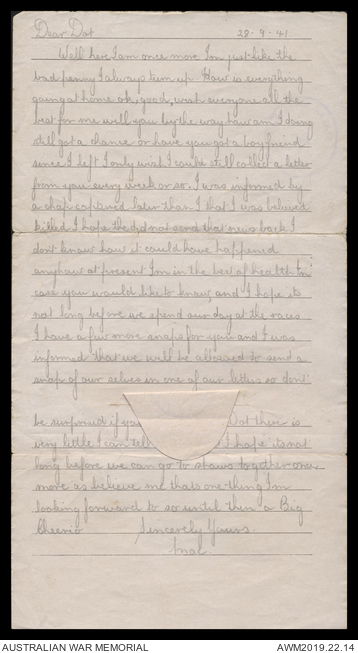 Dear Dot 28-9-41.
Well here I am once more I'm just like the
bad penny I always turn up How is everything
going at home ok, good, wish everyone all the
best for me will you by the way how am I doing
still got a chance or have you got a boyfriend
since I left I only wish I could still collect a letter
from you every week or so. I was informed by
a chap captured later than I that I was believed
killed I hope they did not send that news back I
don't know how it could have happened
anyhow at present I'm in the best of health in
case you would like to know and I hope its
not long before we spend our day at the races
I have a few more snaps for you and I was
informed that we will be allowed to send a
snap of our selves in one of our letters so don't
be surprised if you Dot there is
very little I can tell I hope its not
long before we can go to shows together once
more as believe me thats one thing I'm
looking forward to so until then a Big
Cheerio Sincerely Yours.
Mal.
AUSTRALIAN WAR MEMORIAL AWM2019.22.14